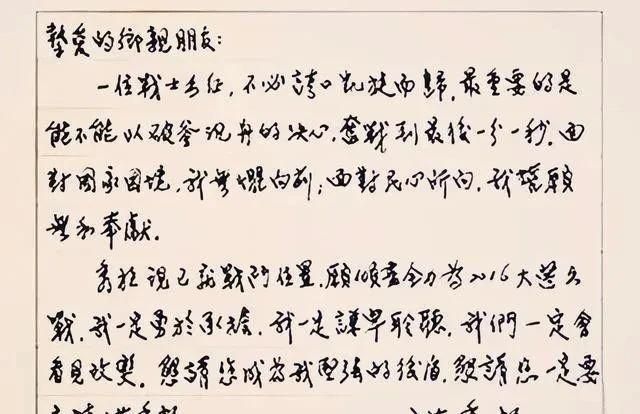 摯愛的鄉親朋友:
一位戰士出征,不必誇口凱旋而歸,最重要的是
能不能以破釜沉舟的決心,奮戰到最後一分一秒。面
對國家困境,我無懼向前;面對民心所向,我誓願
無私奉獻。
秀柱現已就戰鬥位置,願傾盡全力為2016大選之
戰,我一定勇於承擔,我一定謙卑聆聽,我們一定會
看見改變。懇請您成為我堅強的後盾,懇請您一定要